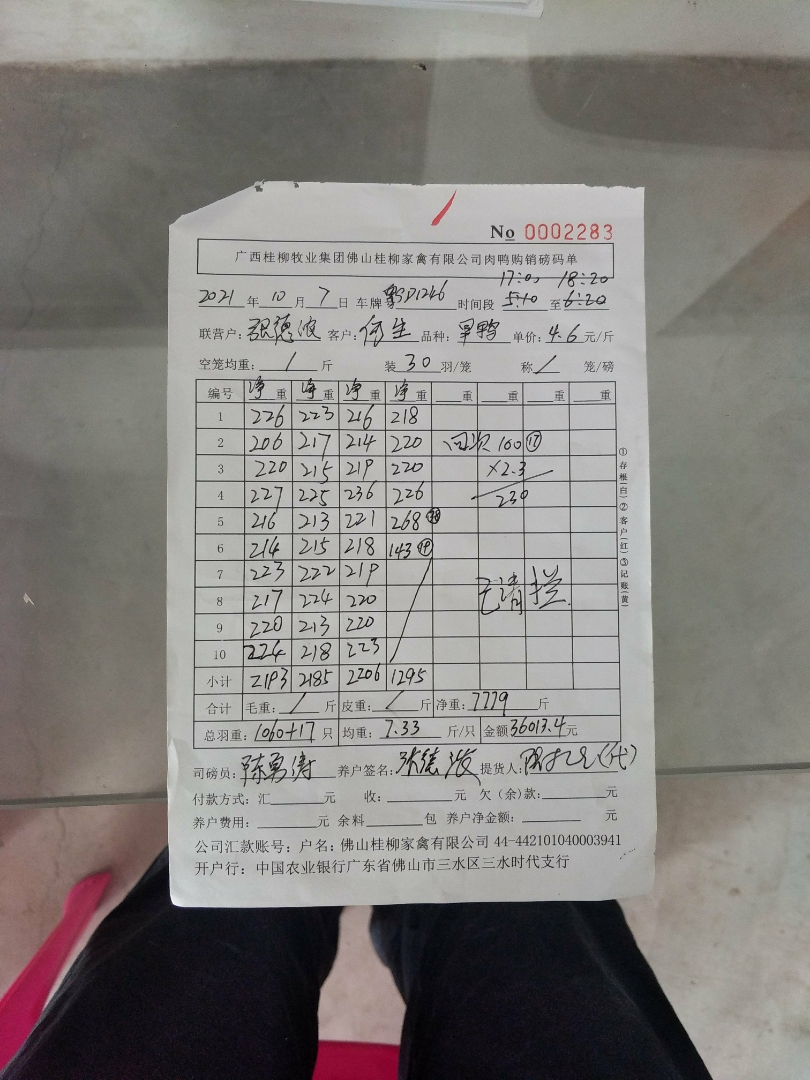 No 0002283
广西桂柳牧业集团佛山桂柳家禽有限公司肉鸭购销磅码单
17:00 18:20
2021年10月7日 车牌 D1246 时间段 5:10 至 6:20
联营户: 张德波 客户: 何生 品种: 旱鸭 单价: 4.6 元/斤
空笼均重: / 斤 装 30 羽/笼 称 / 笼/磅
编号 净重 净重 净重 净重 重 重 重 重
1 226 223 216 218
2 206 217 214 220 100 ⑰
3 220 215 219 220 ×2.3
4 227 225 236 226 230
5 216 213 221 268 ㊳
6 214 215 218 143 ⑲
7 223 222 219
8 217 224 220 已清拦
9 220 213 220
10 224 218 223
小计 2193 2185 2206 1295
合计 毛重: / 斤 皮重: / 斤 净重: 7779 斤
总羽重: 1060+17 只 均重: 7.33 斤/只 金额 36013.4 元
司磅员: 陈勇涛 养户签名: 张德波 提货人: (代)
付款方式: 汇 元 收: 元 欠(余)款: 元
养户费用: 元 余料 包 养户净金额: 元
公司汇款账号: 户名: 佛山桂柳家禽有限公司 44-442101040003941
开户行: 中国农业银行广东省佛山市三水区三水时代支行
①存根(白)②客户(红)③记账(黄)